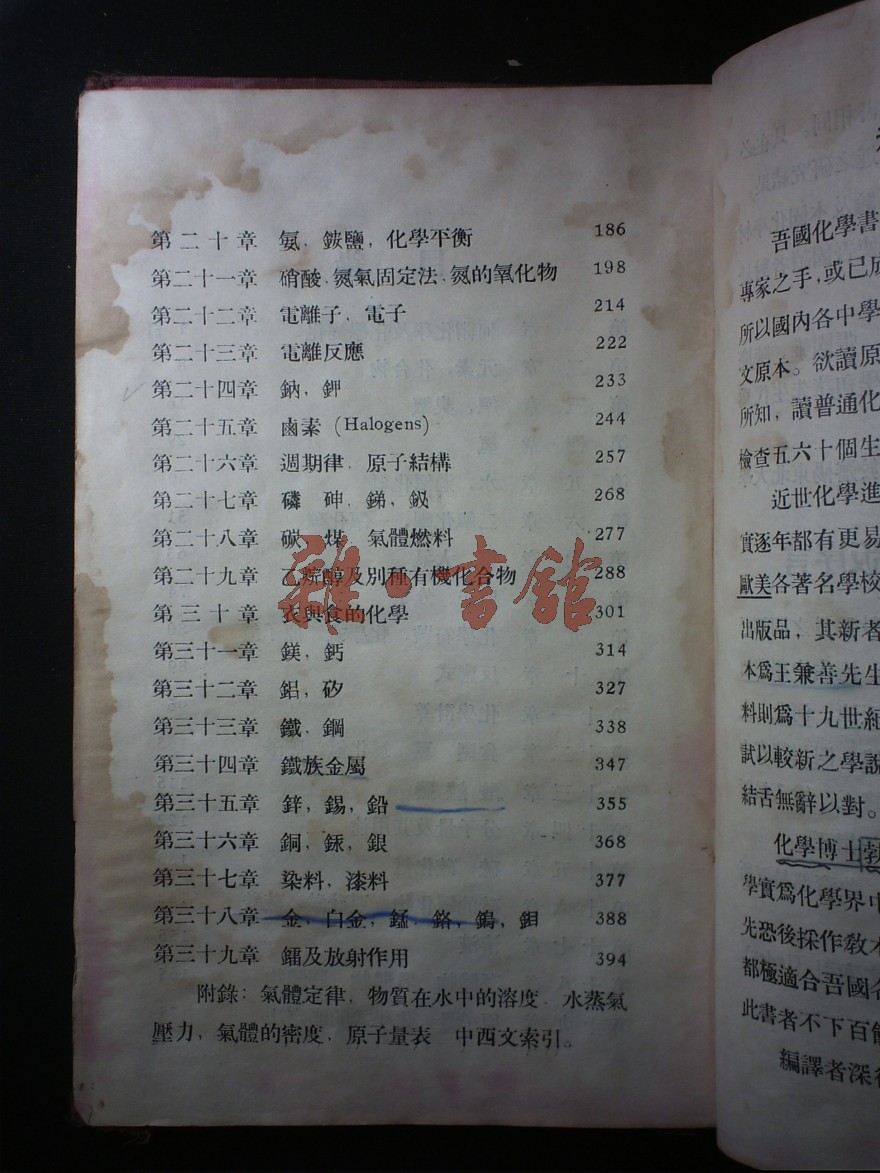 第二十章 氨，銨鹽，化學平衡 186
第二十一章 硝酸．氮氣固定法．氮的氧化物 198
第二十二章 電離子，電子 214
第二十三章 電離反應 222
第二十四章 鈉，鉀 233
第二十五章 鹵素 (Halogens) 244
第二十六章 週期律．原子結構 257
第二十七章 磷 砷，銻，鉍 268
第二十八章 碳，煤 氣體燃料 277
第二十九章 乙烷醇及別種有機化合物 288
第三十章 衣與食的化學 301
第三十一章 鎂，鈣 314
第三十二章 鋁，矽 327
第三十三章 鐵，鋼 338
第三十四章 鐵族金屬 347
第三十五章 鋅，錫，鉛 355
第三十六章 銅，銾，銀 368
第三十七章 染料，漆料 377
第三十八章 金，白金，錳．鉻，鎢，鉬 388
第三十九章 鐳及放射作用 394
附錄：氣體定律，物質在水中的溶度．水蒸氣
壓力，氣體的密度，原子量表 中西文索引。
雜·書館
吾國化學書
專家之手，或已
所以國內各中學
文原本。欲讀原
所知，讀普通化
檢查五六十個生
近世化學進
實逐年都有更易
歐美各著名學校
出版品，其新者
本爲王兼善先生
料則爲十九世紀
試以較新之學說
結舌無辭以對。
化學博士
學實爲化學界
先恐後採作教
都極適合吾國
此書者不下百
編譯者深